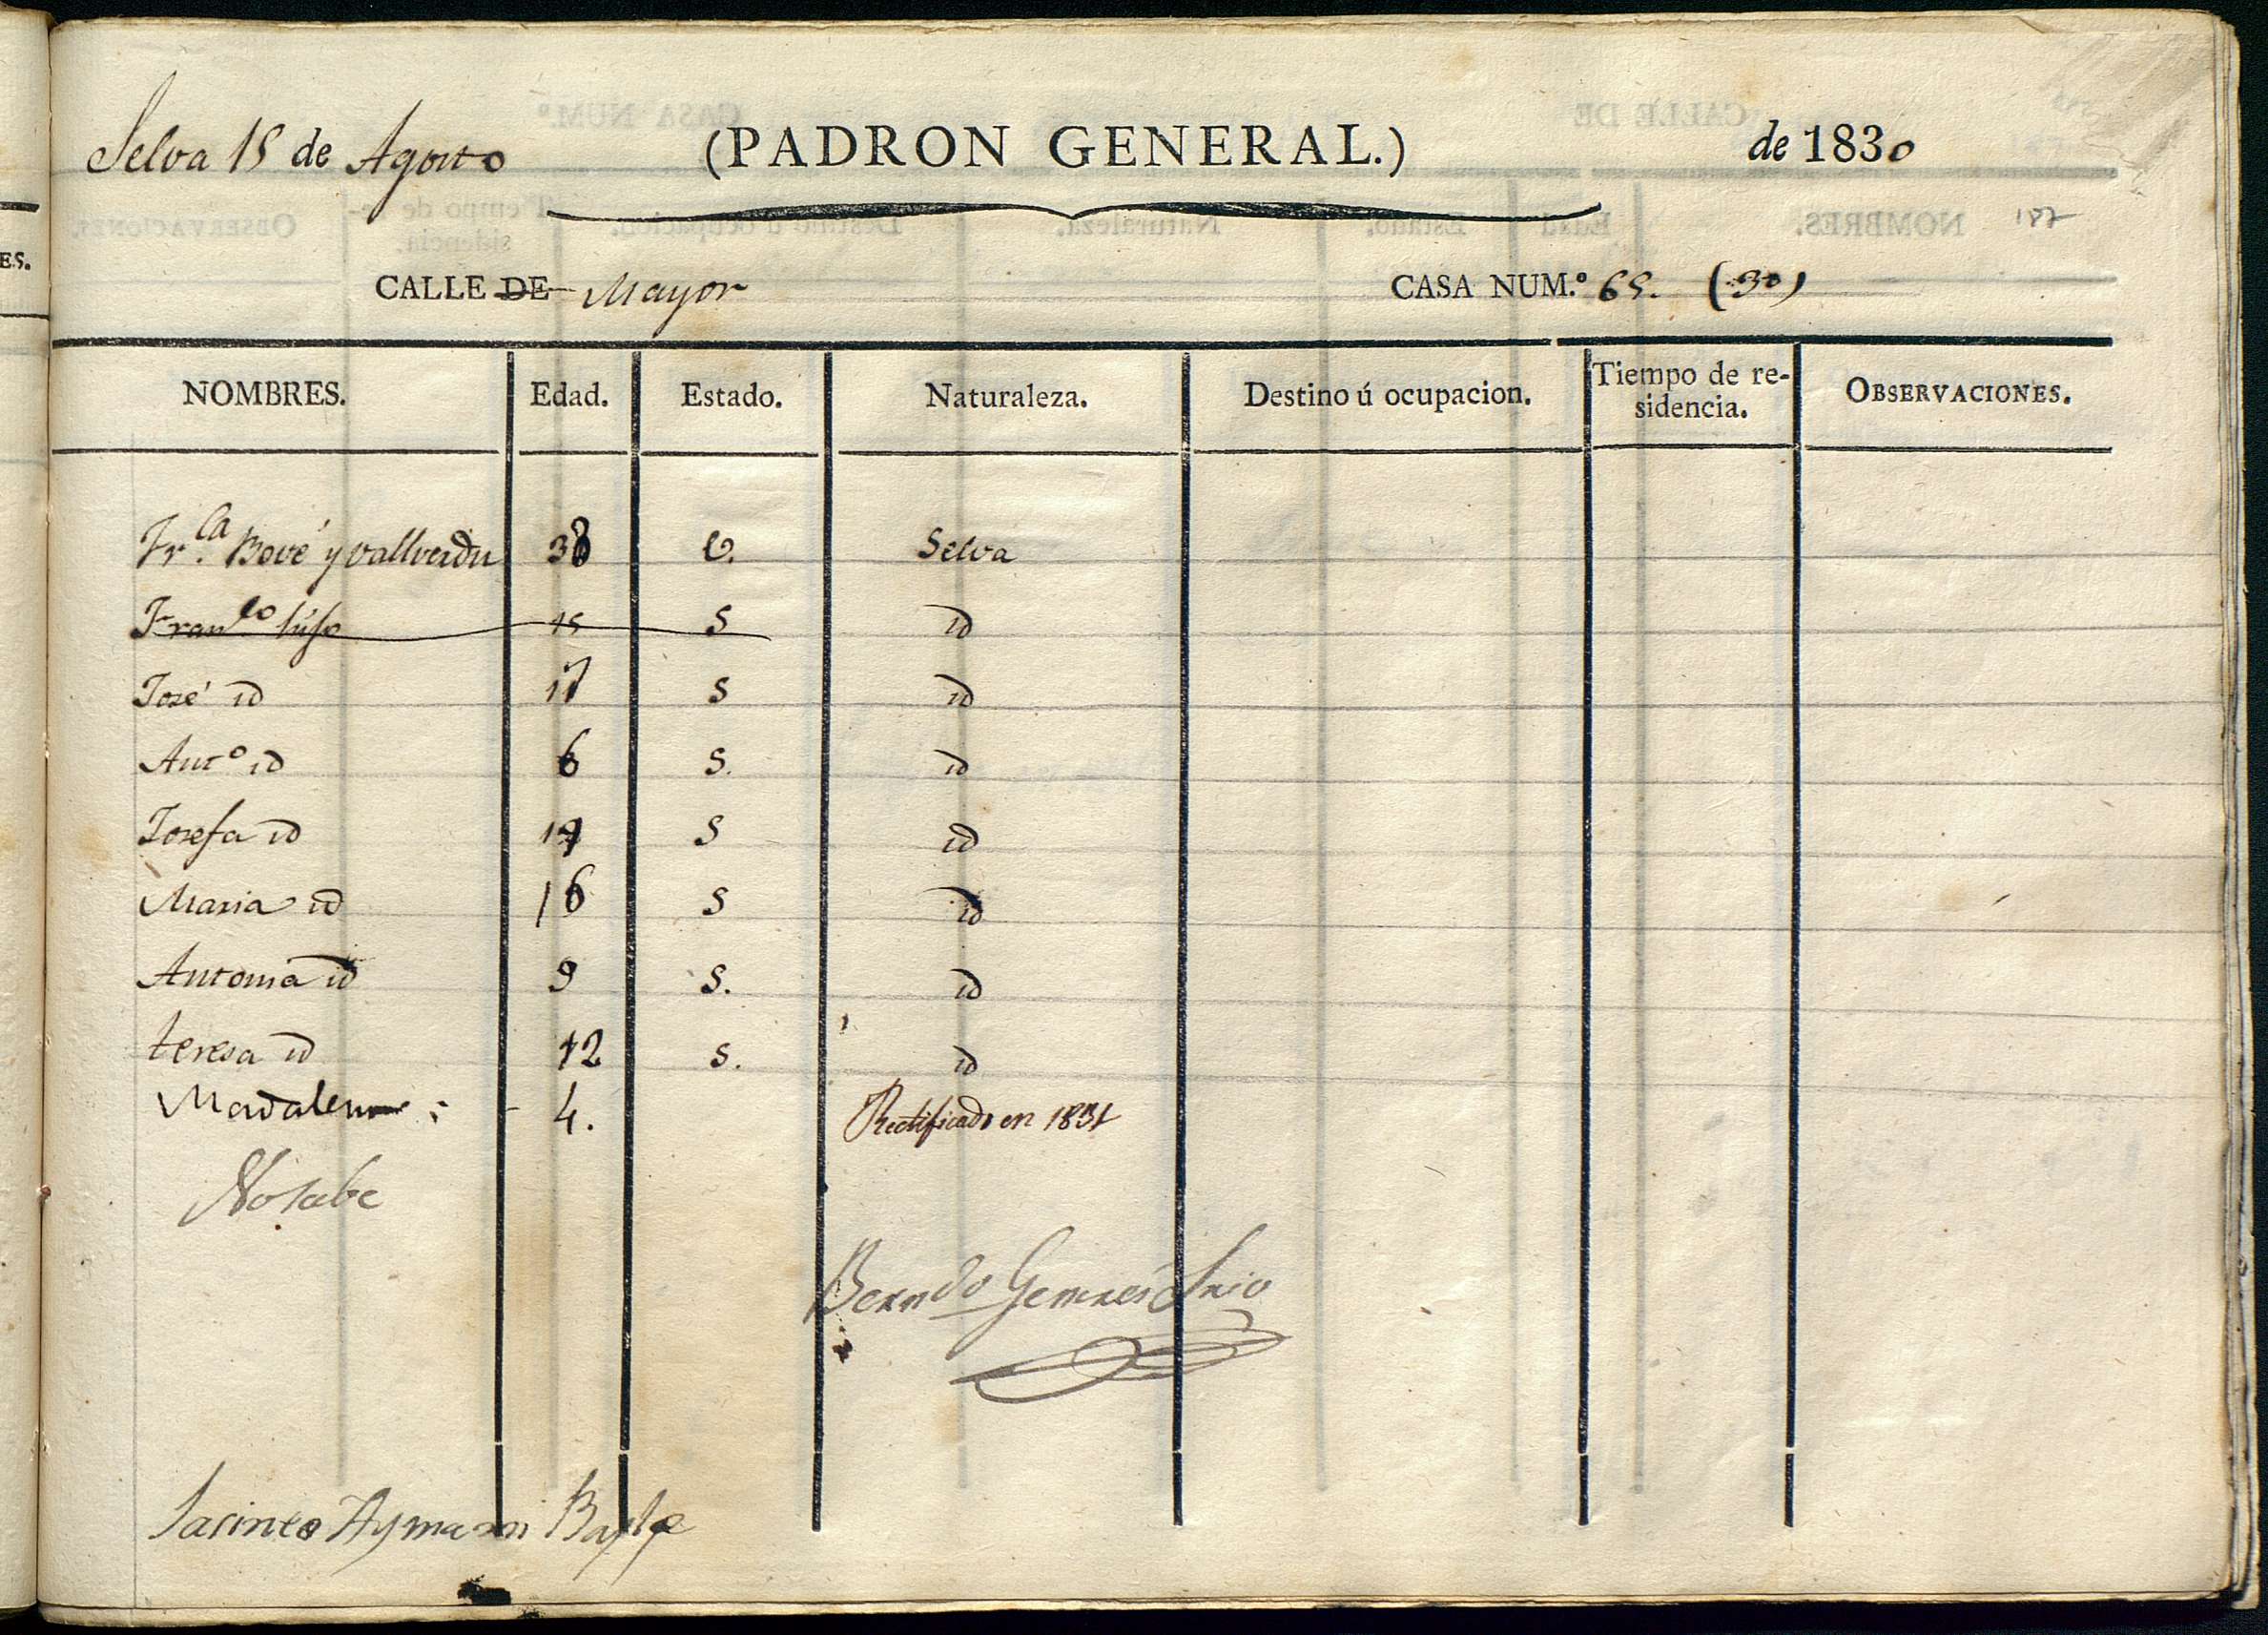 Selva 15 de Agosto (PADRON GENERAL.) de 1830
187
CALLE DE Mayor CASA NUM.º 65. (30)
NOMBRES. Edad. Estado. Naturaleza. Destino ú ocupacion. Tiempo de re-sidencia. OBSERVACIONES.
Fr.ca Bové y Vallverdu 38 C. Selva
Franco hijo 15 S id
José id 17 S id
Anto id 6 S. id
Josefa id S id
Maria id 16 S id
Antonia id 9 S. id
teresa id 12 S. id
Madalena 4. Rectificado en 1831
No sabe
Berndo Gemnes Srio
Jacinto Aymami Bayle